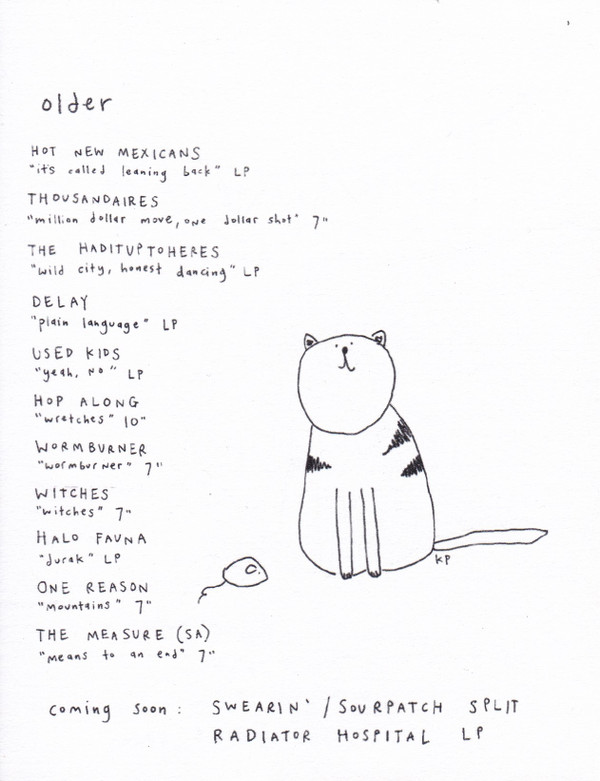 older
HOT NEW MEXICANS
"it's called leaning back" LP
THOUSANDAIRES
"million dollar move, one dollar shot" 7"
THE HADITUPTOHERES
"wild city, honest dancing" LP
DELAY
"plain language" LP
USED KIDS
"yeah, no" LP
HOP ALONG
"wretches" 10"
WORMBURNER
"wormburner" 7"
WITCHES
"witches" 7"
HALO FAUNA
"durak" LP
ONE REASON
"mountains" 7"
THE MEASURE (SA)
"means to an end" 7"
KP
coming soon: SWEARIN' / SOURPATCH SPLIT
RADIATOR HOSPITAL LP